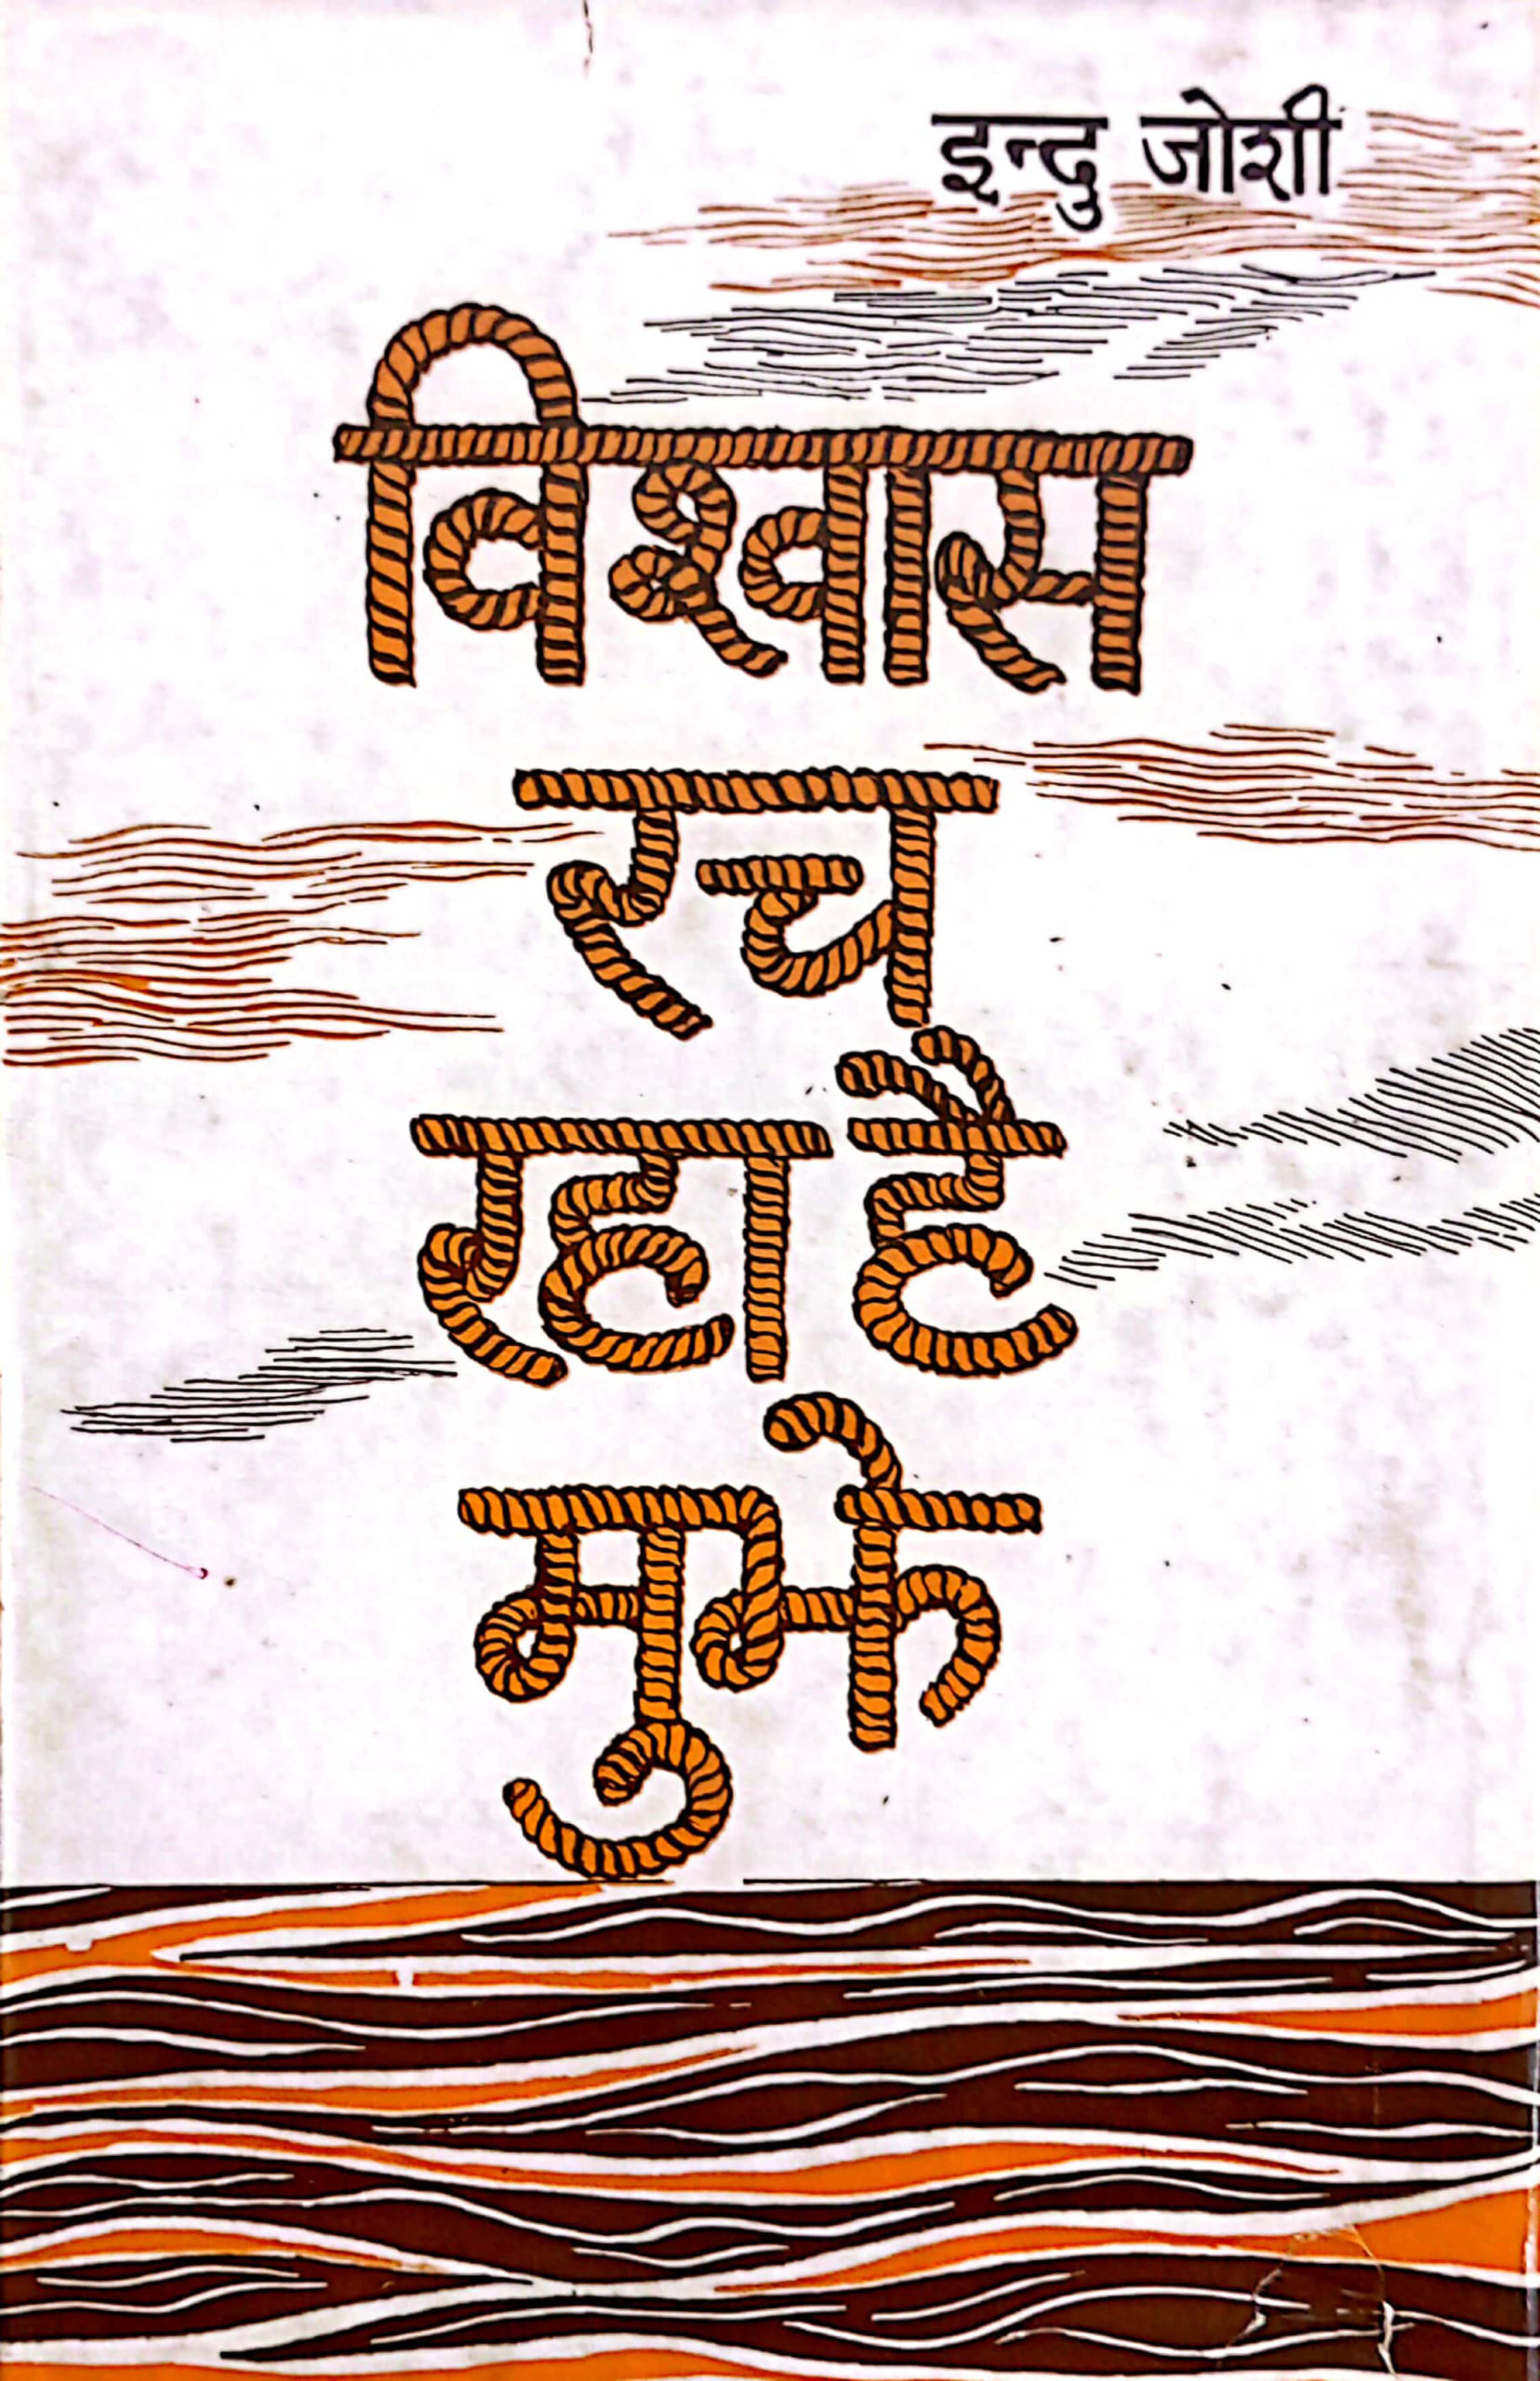 इन्दु जोशी
विश्वास
रच
रहा है
मुझे